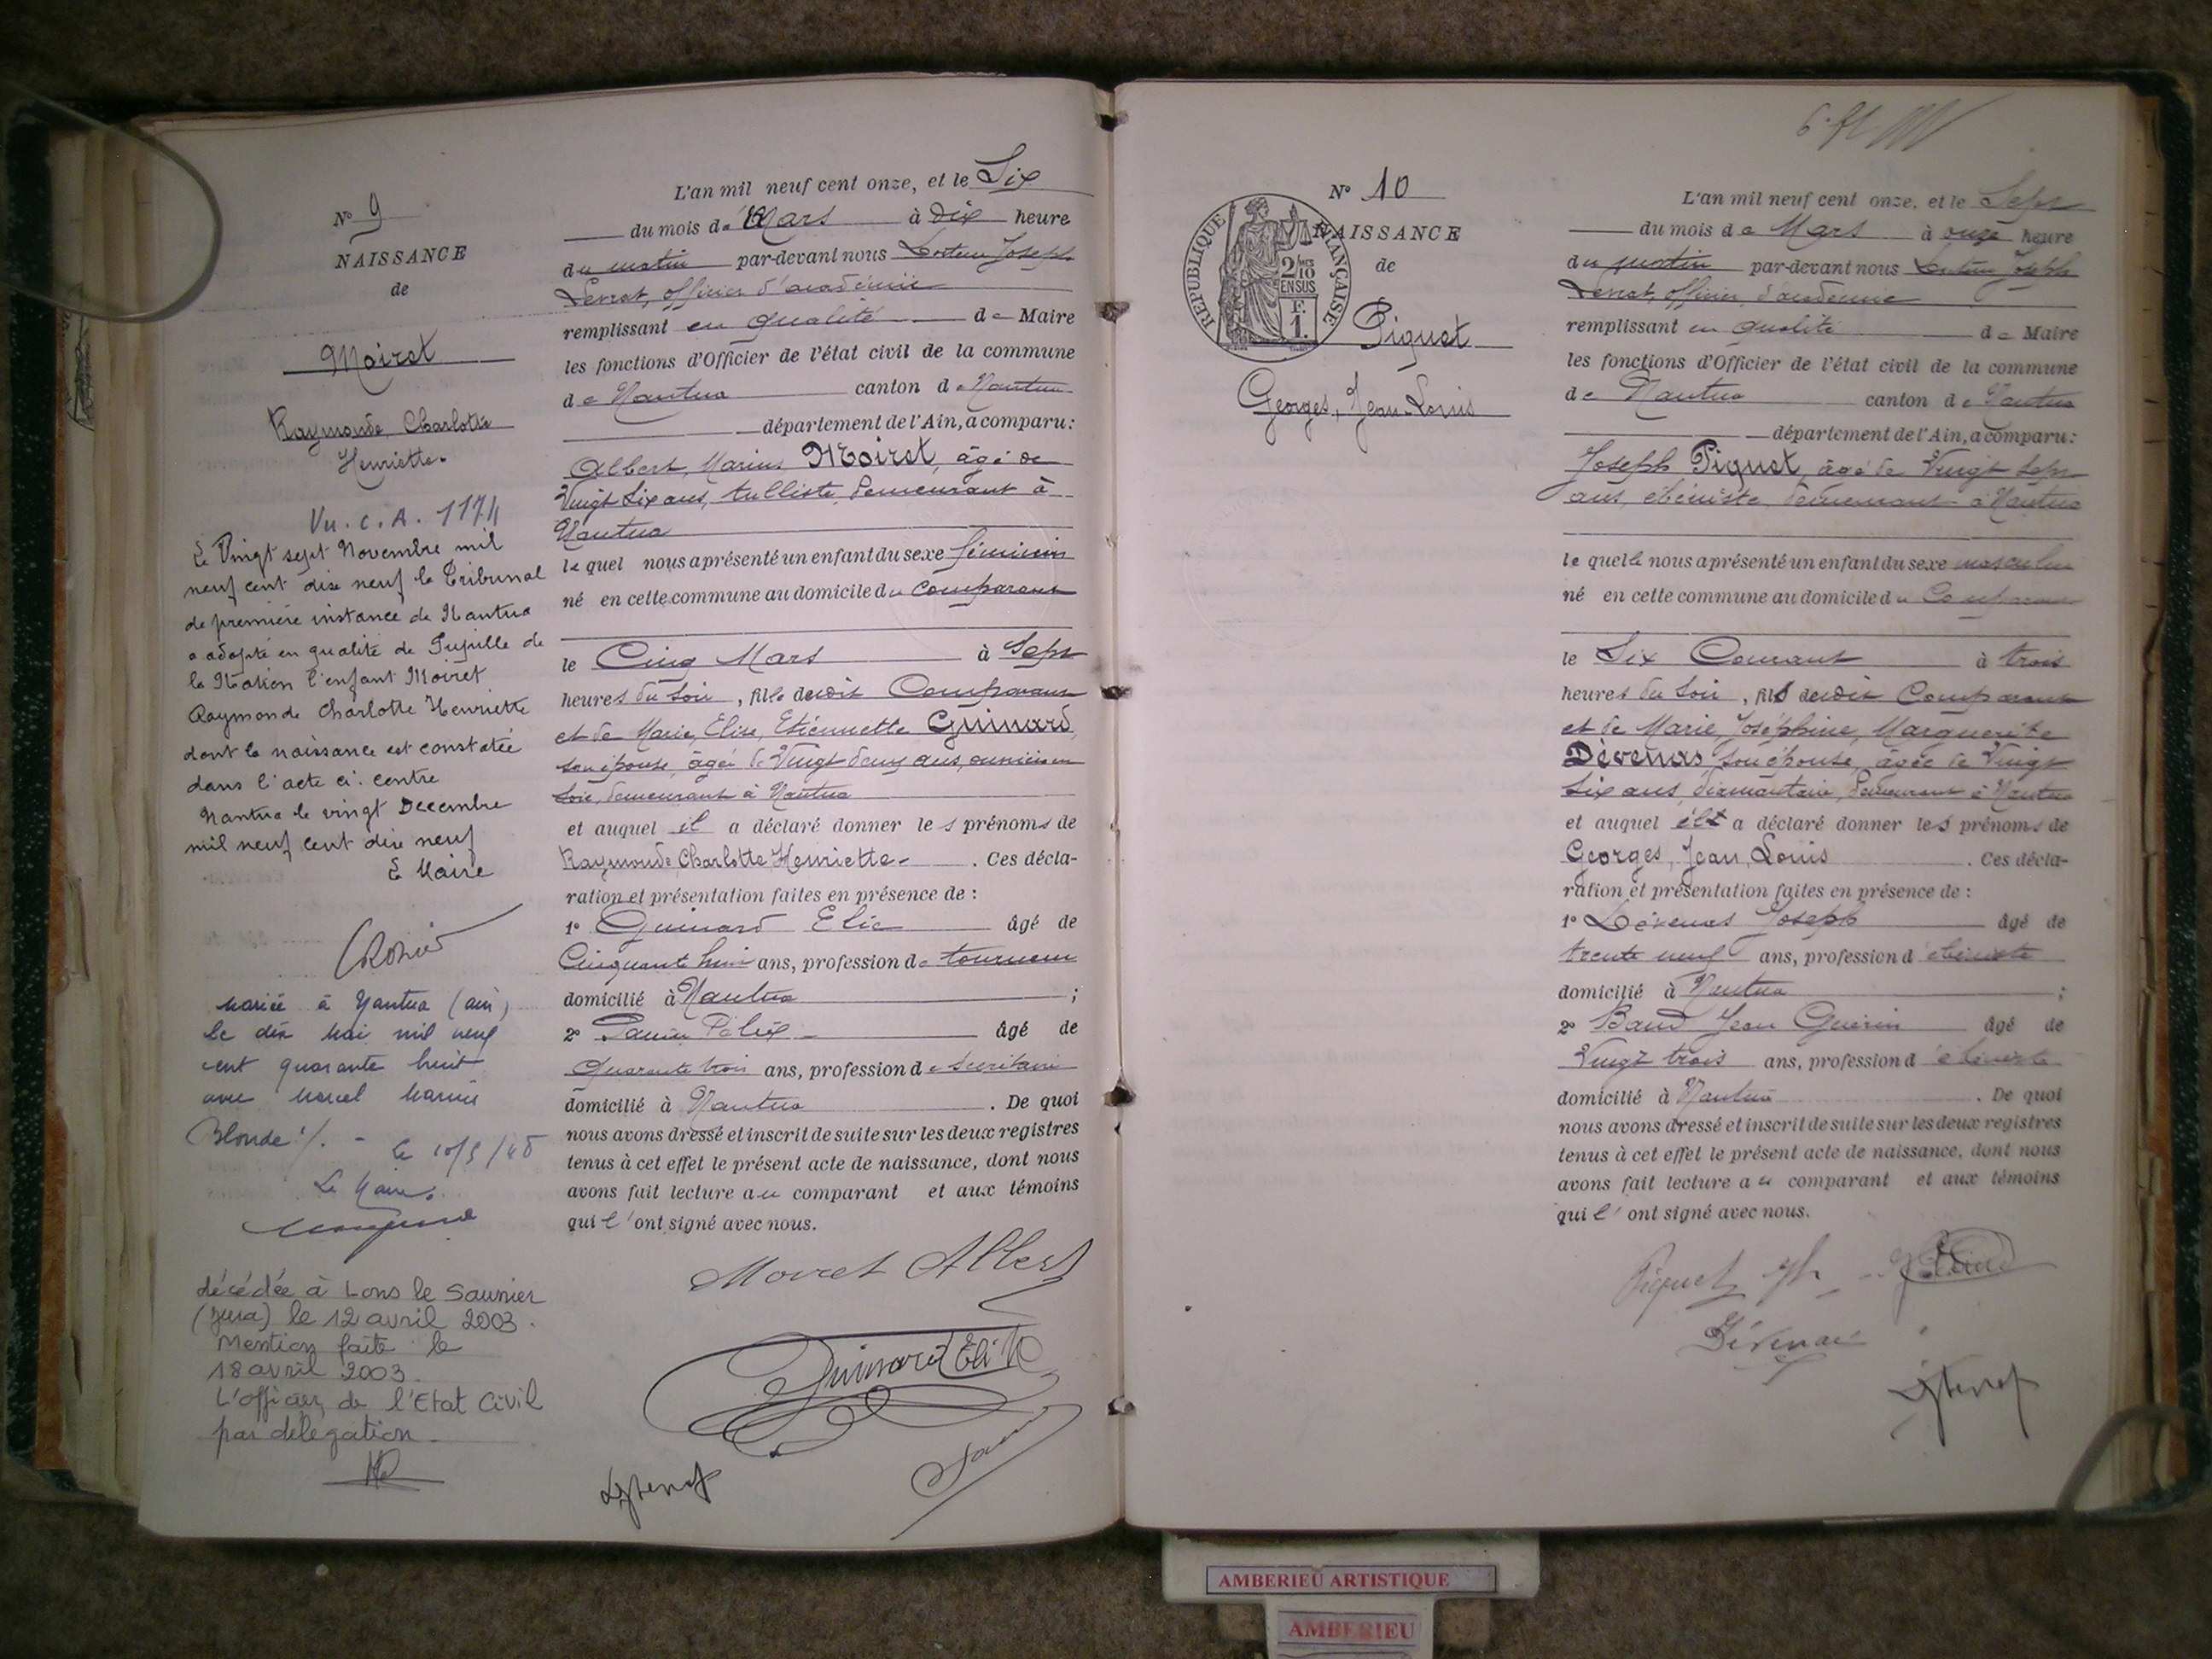 N° 9
NAISSANCE
de
Moiret
Raymonde, Charlotte
Henriette.
Vu. C. A. 1174
Le Vingt sept Novembre mil
neuf cent dix neuf le Tribunal
de première instance de Nantua
a adopté en qualité de Pupille de
la Nation l'enfant Moiret
Raymonde Charlotte Henriette
dont la naissance est constatée
dans l'acte ci-contre
Nantua le vingt Decembre
mil neuf cent dix neuf
Le Maire
Mariée à Nantua (ain)
le dix Mai mil neuf
cent quarante huit
avec Marcel Marius
Blonde ./. - le 10/5/48
Le Maire
décédée à Lons le Saunier
(Jura) le 12 avril 2003.
Mention faite le
18 avril 2003.
L'officier de l'Etat Civil
par délégation.
L'an mil neuf cent onze, et le Six
du mois de Mars à Dix heure
du matin par-devant nous Docteur Joseph
officier d'académie
remplissant en qualité de Maire
les fonctions d'Officier de l'état civil de la commune
de Nantua canton de Nantua
département de l'Ain, a comparu:
Albert, Marius Moiret, âgé de
Vingt Six ans, tulliste, demeurant à
Nantua
le quel nous a présenté un enfant du sexe féminin
né en cette commune au domicile du Comparant
le Cinq Mars à Sept
heures du Soir, fille dudit Comparant
et de Marie, Elise, Etiennette Guinard,
son épouse, âgée de Vingt deux ans, ouvrière en
Soie, demeurant à Nantua
et auquel il a déclaré donner les prénoms de
Raymonde, Charlotte, Henriette. Ces décla-
ration et présentation faites en présence de :
1° Guinard Elie âgé de
Cinquant huit ans, profession de tourneur
domicilié à Nantua ;
2° Félix âgé de
Quarante trois ans, profession de secrétaire
domicilié à Nantua . De quoi
nous avons dressé et inscrit de suite sur les deux registres
tenus à cet effet le présent acte de naissance, dont nous
avons fait lecture au comparant et aux témoins
qui l'ont signé avec nous.
Moiret Albert
Guinard Elie
N° 10
NAISSANCE
de
RÉPUBLIQUE FRANÇAISE
2/10 MES
EN SUS
F.
1.
Piguet
Georges, Jean-Louis
L'an mil neuf cent onze, et le Sept
du mois de Mars à onze heure
du matin par-devant nous Docteur Joseph
officier d'académie
remplissant en qualité de Maire
les fonctions d'Officier de l'état civil de la commune
de Nantua canton de Nantua
département de l'Ain, a comparu:
Joseph Piguet, âgé de Vingt Sept
ans, ébéniste, demeurant à Nantua
le quel nous a présenté un enfant du sexe masculin
né en cette commune au domicile du Comparant
le Six Courant à trois
heures du Soir, fils dudit Comparant
et de Marie, Joséphine, Marguerite
Dévenas, son épouse, âgée de Vingt
Six ans, diamantaire, demeurant à Nantua
et auquel il a déclaré donner les prénoms de
Georges, Jean, Louis . Ces décla-
ration et présentation faites en présence de :
1° Dévenas Joseph âgé de
trente neuf ans, profession d'ébéniste
domicilié à Nantua ;
2° Baud Jean Guérin âgé de
Vingt trois ans, profession d'ébéniste
domicilié à Nantua . De quoi
nous avons dressé et inscrit de suite sur les deux registres
tenus à cet effet le présent acte de naissance, dont nous
avons fait lecture au comparant et aux témoins
qui l'ont signé avec nous.
Piguet Jh
Dévenas
AMBERIEU ARTISTIQUE
AMBERIEU